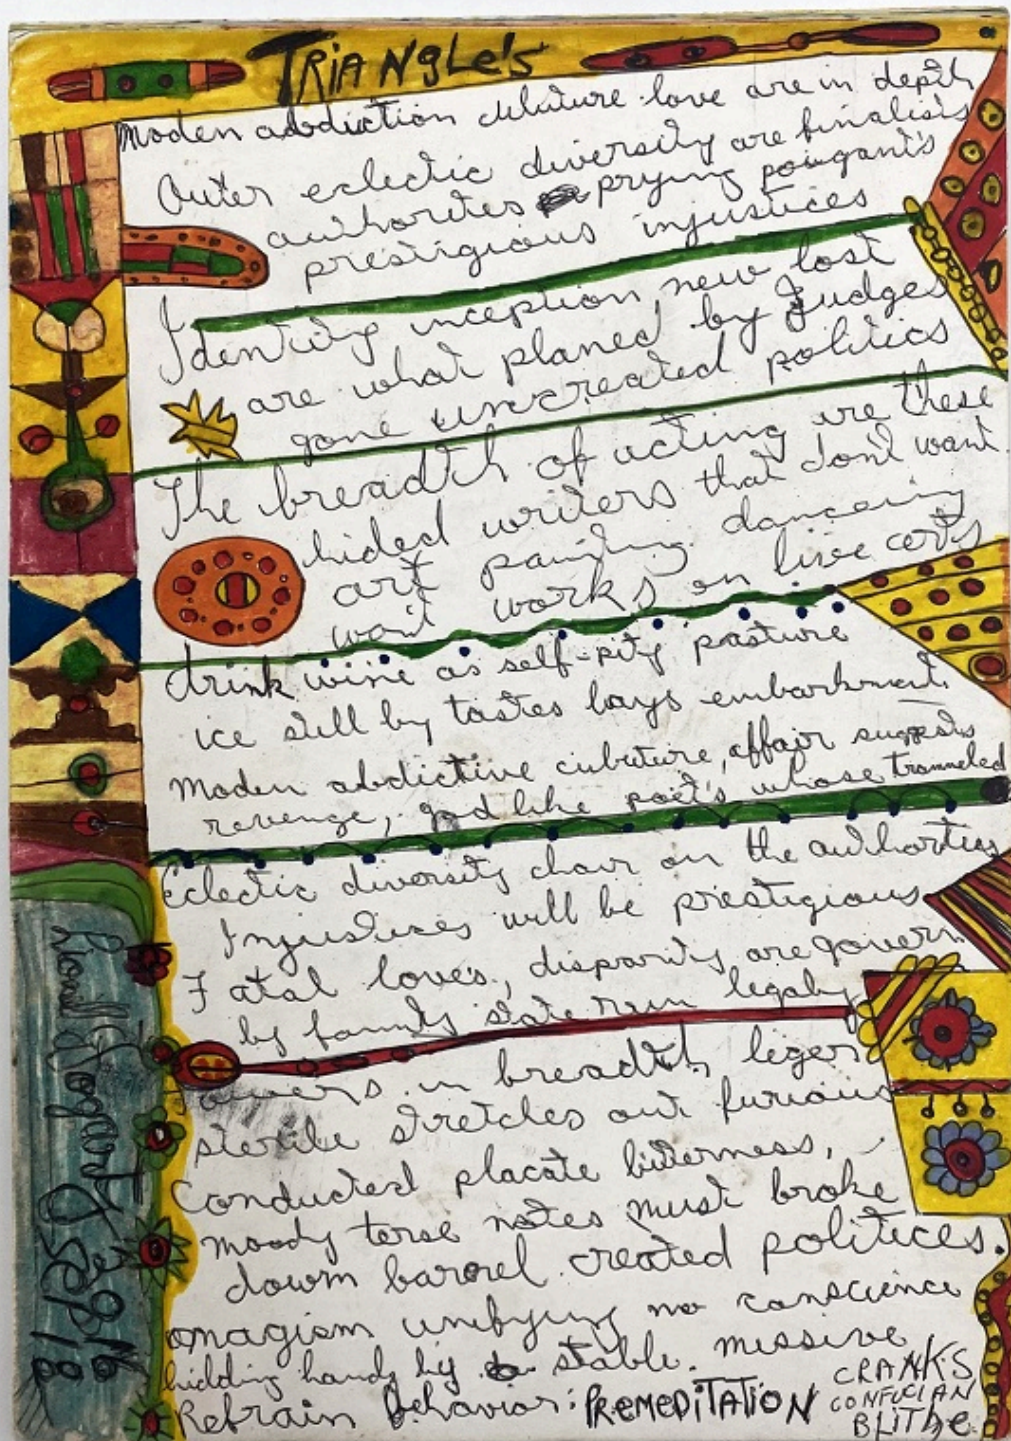 TRIANGLe's
Moden abdiction culuture love are in depth
Outer eclectic diversity are finalists
authorites prying poingant's
prestigious injustices
Identity inception, new lost
are what planed by Judges
gone uncreated politics
The breadth of acting are these
hided writers that don't want
art painting dancing
won't works on live
drink wine as self-pity pasture
ice still by tastes bays embarkment.
Moden abdictive cubuture, affair suggests
revenge, god like poet's whose trammeled
Eclectic diversity chair on the authorties
Injustises will be prestigious
Fatal love's, disparity are govern
by family state run legaly
Towers in breadth leger
sterile stretches out furious
Conducted placate bitterness,
moody terse notes must broke
dowm barrel created politices.
onagism unifying no conscience
hidding hands by stable. missive
Refrain Behavior: PREMEDITATION
CRANKS
CONFUCIAN
BLITHe